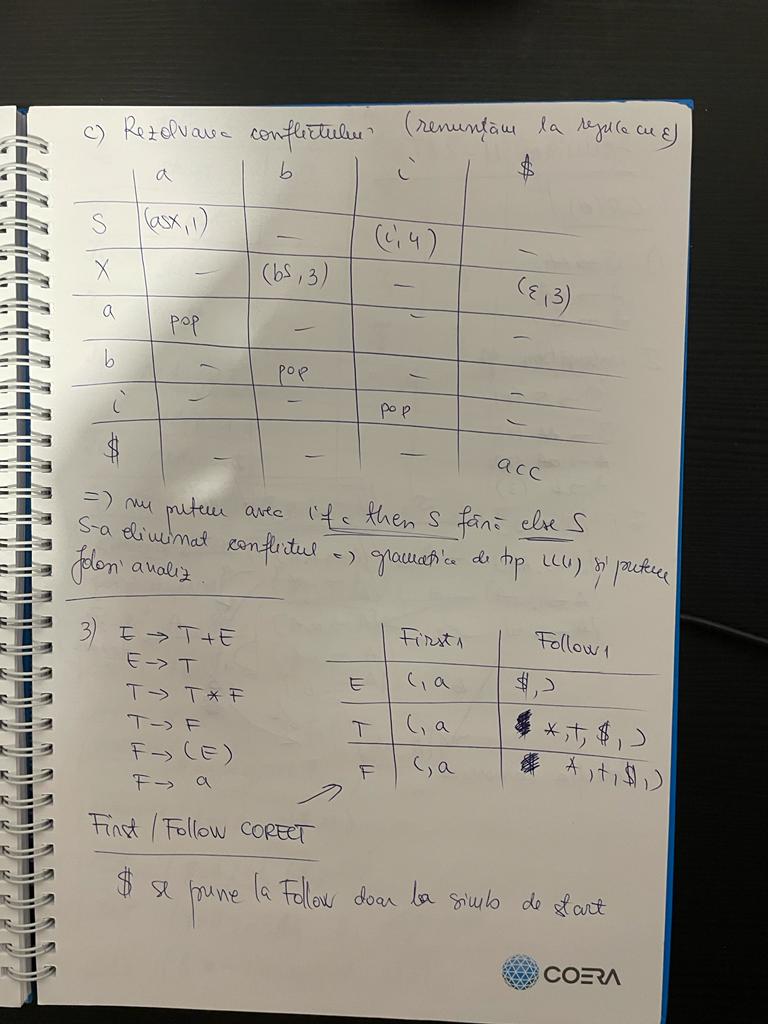 c) Rezolvarea conflictului: (renunțăm la regula cu ε)
a b i $
S (aSX,1) – (i,4) –
X – (bS,3) – (ε,3)
a pop – – –
b – pop – –
i – – pop –
$ – – – acc
=) nu putem avea if c then S fără else S
S-a eliminat conflictul =) gramatica de tip LL(1) și putem
folosi analiz.
3) E → T+E
E → T
T → T * F
T → F
F → (E)
F → a
First1 Follow1
E (, a $, )
T (, a *, +, $, )
F (, a *, +, $, )
First / Follow CORECT
$ se pune la Follow doar la simb de start
COERA